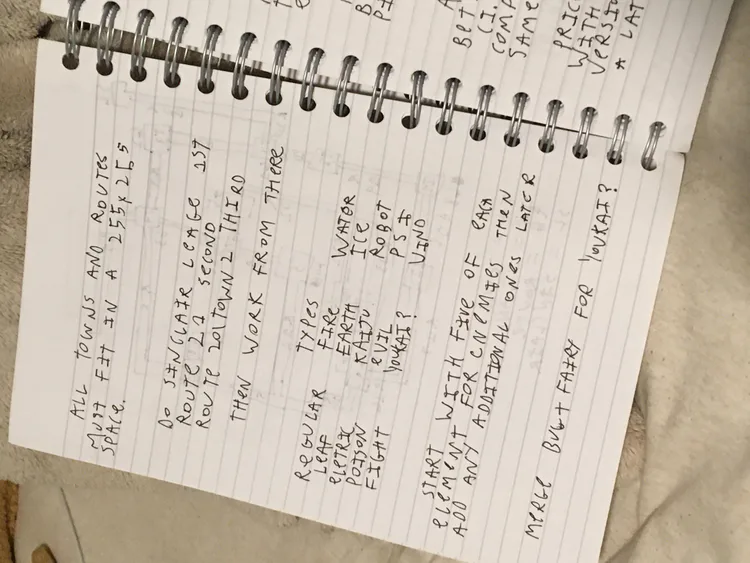 ALL TOWNS AND ROUTES
MUST FIT IN A 255x255
SPACE.
DO SINCLAIR LEAGE 1ST
ROUTE 21 SECOND
ROUTE 201TOWN2 THIRD
THEN WORK FROM THERE
REGULAR TYPES
LEAF FIRE WATER
ELETRIC EARTH ICE
POISON KAIJU ROBOT
FIGHT EVIL PSI
YOUKAI? WIND
START WITH FIVE OF EACH
ELEMENT FOR ENEMIES THEN
ADD ANY ADDITIONAL ONES LATER
MERGE BUG+FAIRY FOR YOUKAI?
BET
(I.
COMP
SAME
PRIC
WITH
VERSIO
A LAT